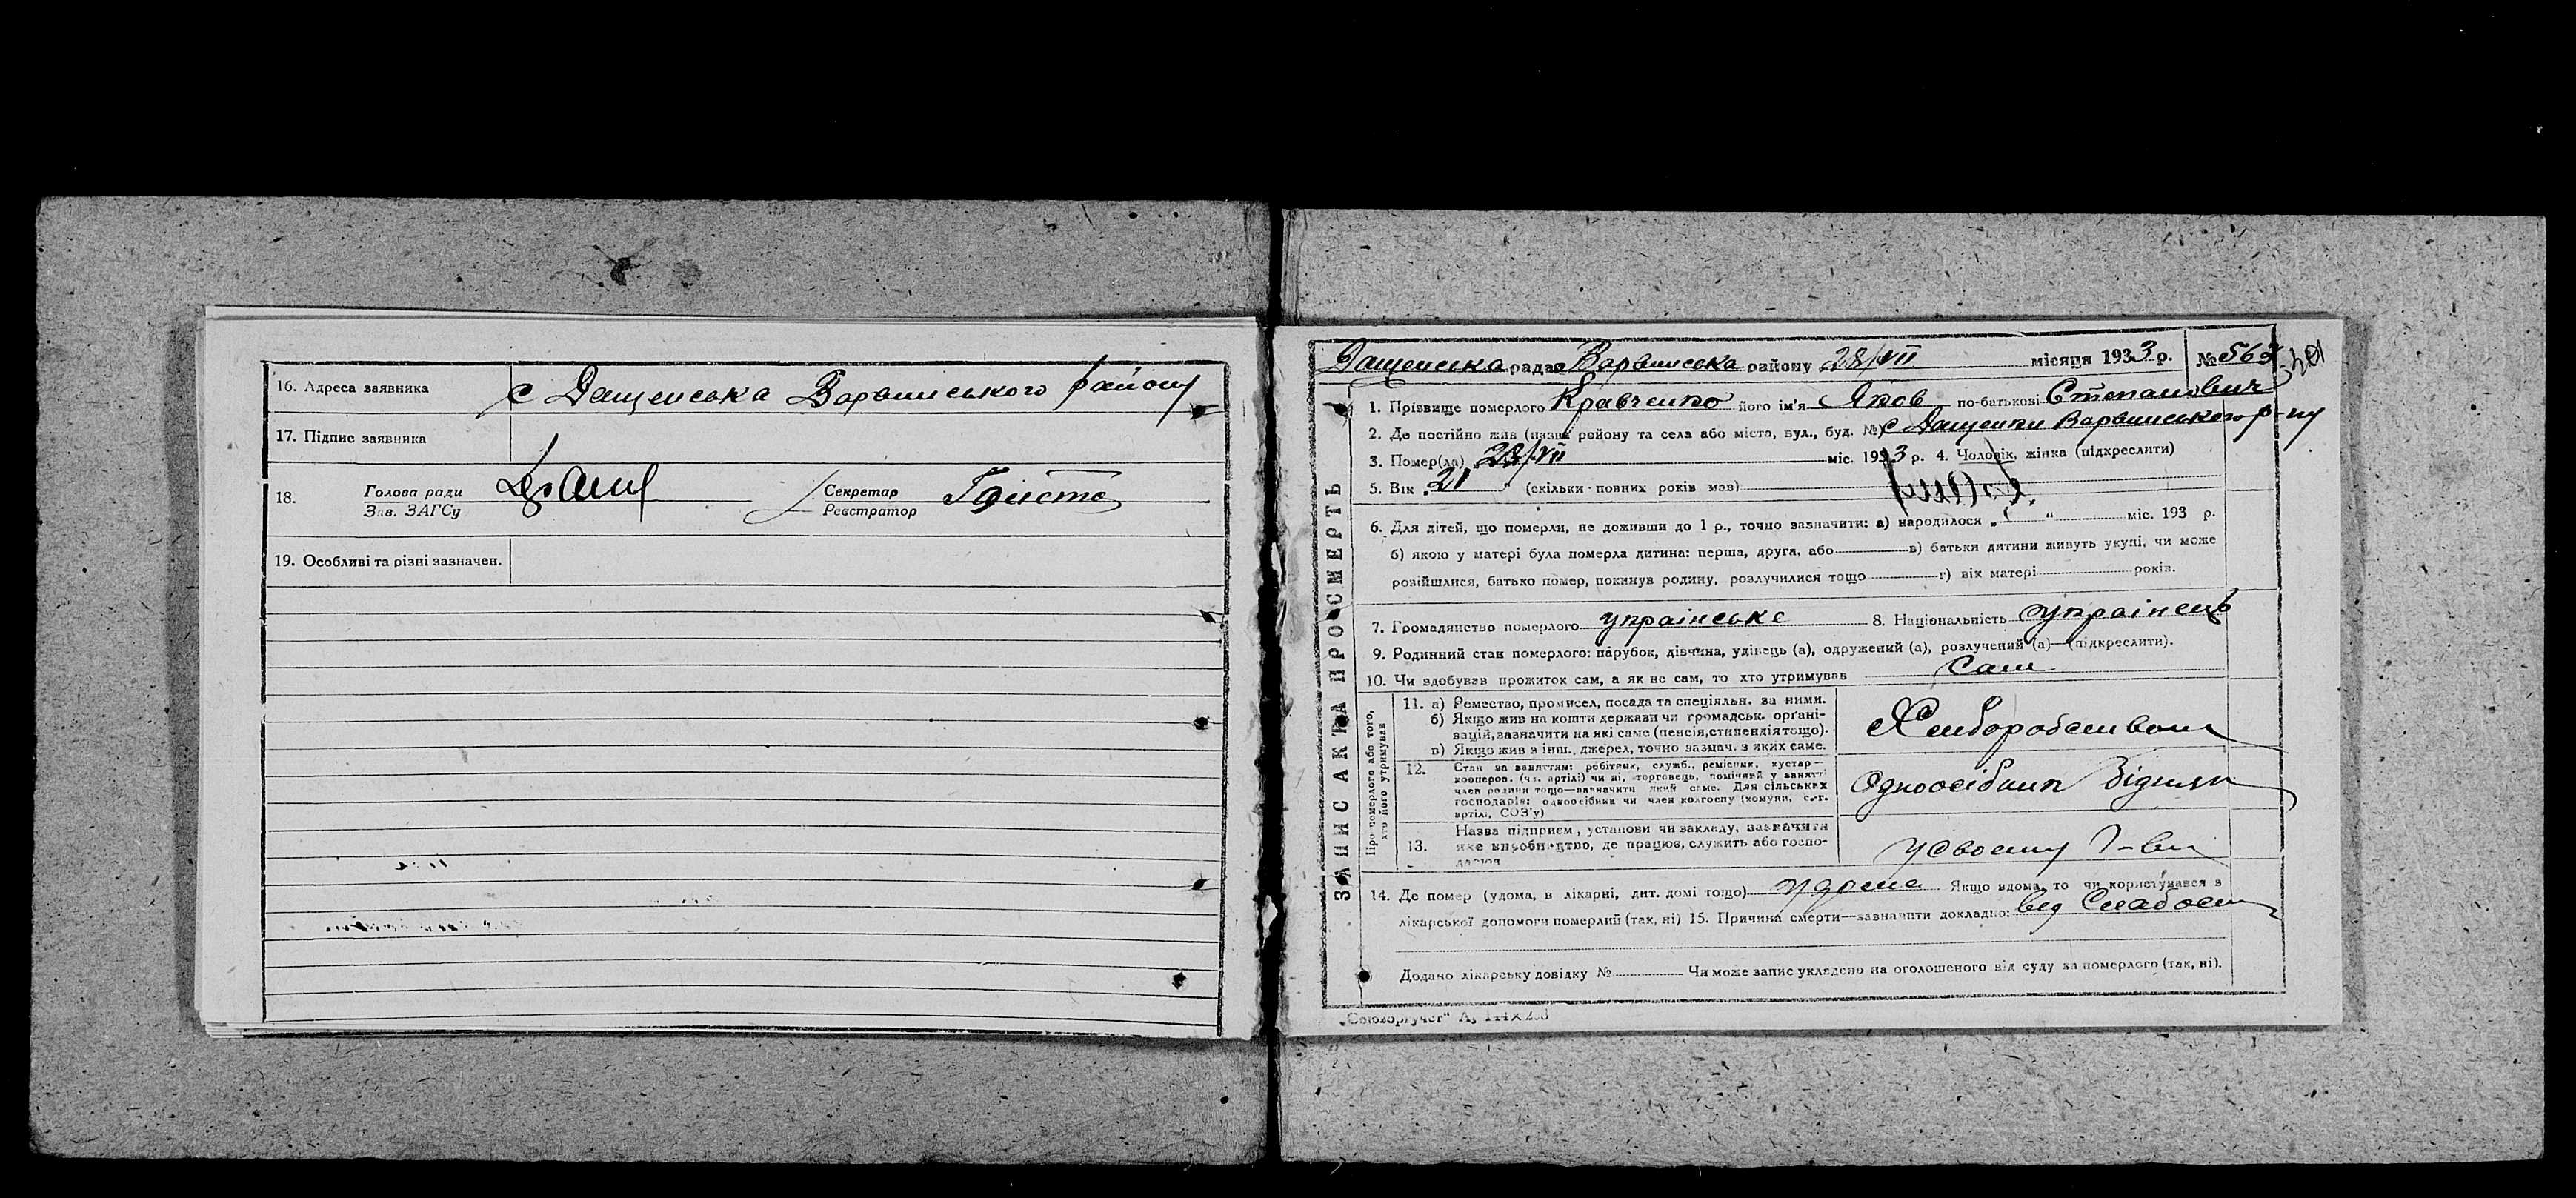 16. Адреса заявника с Дащенська Варвинського району
17. Підпис заявника
18. Голова ради Секретар
Зав. ЗАГСу Реєстратор
19. Особливі та різні зазначен.
ЗАПИС АКТА ПРО СМЕРТЬ
Дащенська рада Варвинська району 28/VII місяця 1933 р. №
1. Прізвище померлого Кравченко його ім'я Яков по-батькові Степанович
2. Де постійно жив (назва району та села або міста, вул., буд. №) с Дащенки Варвинського р-ну
3. Помер(ла) 28/VII міс. 1933 р. 4. Чоловік, жінка (підкреслити)
5. Вік 21 (скільки повних років мав)
6. Для дітей, що померли, не доживши до 1 р., точно зазначити: а) народилося „ “ міс. 193 р.
б) якою у матері була померла дитина: перша, друга, або в) батьки дитини живуть укупі, чи може
розійшлися, батько помер, покинув родину, розлучилися тощо г) вік матері років.
7. Громадянство померлого українське 8. Національність українець
9. Родинний стан померлого: парубок, дівчина, удівець (а), одружений (а), розлучений (а)—(підкреслити).
10. Чи здобував прожиток сам, а як не сам, то хто утримував Сам
Про померлого або того, хто його утримував
11. а) Ремество, промисел, посада та спеціяльн. за ними.
б) Якщо жив на кошти держави чи громадськ. органі-
зацій, зазначити на які саме (пенсія, стипендія тощо).
в) Якщо жив з інш. джерел, точно зазнач. з яких саме.
Хліборобством
12. Стан за заняттям: робітник, служб., ремісник, кустар—
кооперов. (чл. артілі) чи ні, торговець, помічний у занятті
член родини тощо—зазначити який саме. Для сільських
господарів: одноосібник чи член колгоспу (комуни, с.-г.
артілі, СОЗ'у)
Одноосібник Бідняк
13. Назва підприєм., установи чи закладу, зазначити
яке виробництво, де працює, служить або госпо-
дарює
У своєму г-ві
14. Де помер (удома, в лікарні, дит. домі тощо) удома Якщо вдома, то чи користувався з
лікарської допомоги померлий (так, ні) 15. Причина смерти—зазначити докладно: від Слабости
Додано лікарську довідку № Чи може запис укладено на оголошеного від суду за померлого (так, ні).
„Союзоргучет“